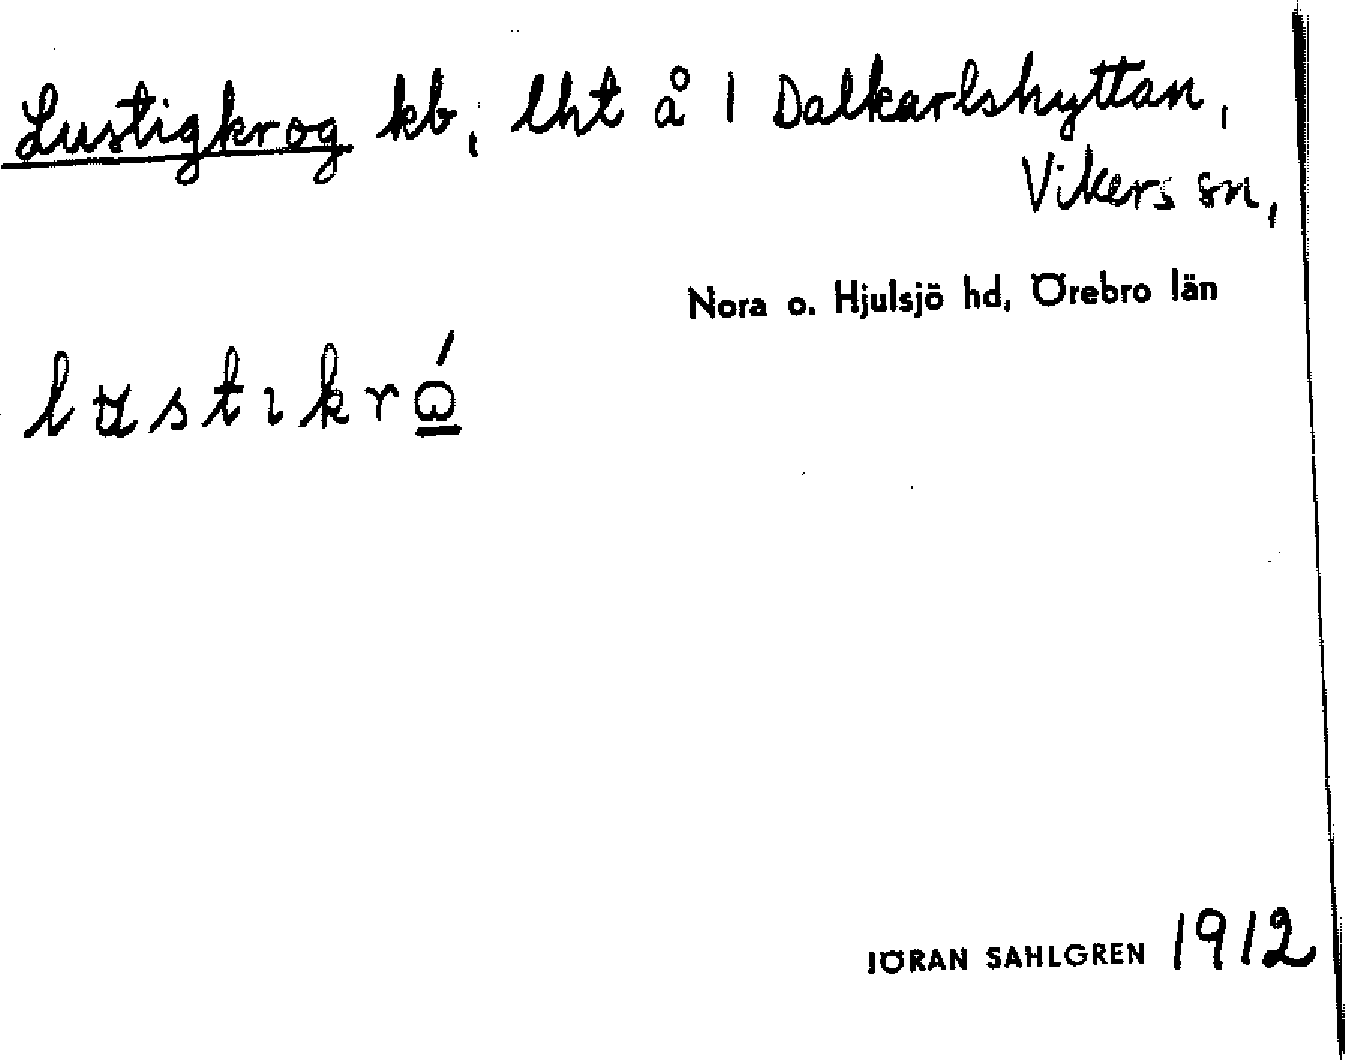 Lustigkrog kb, lht å 1 Dalkarlshyttan,
Vikers sn,
Nora o. Hjulsjö hd, Örebro län
JÖRAN SAHLGREN 1912